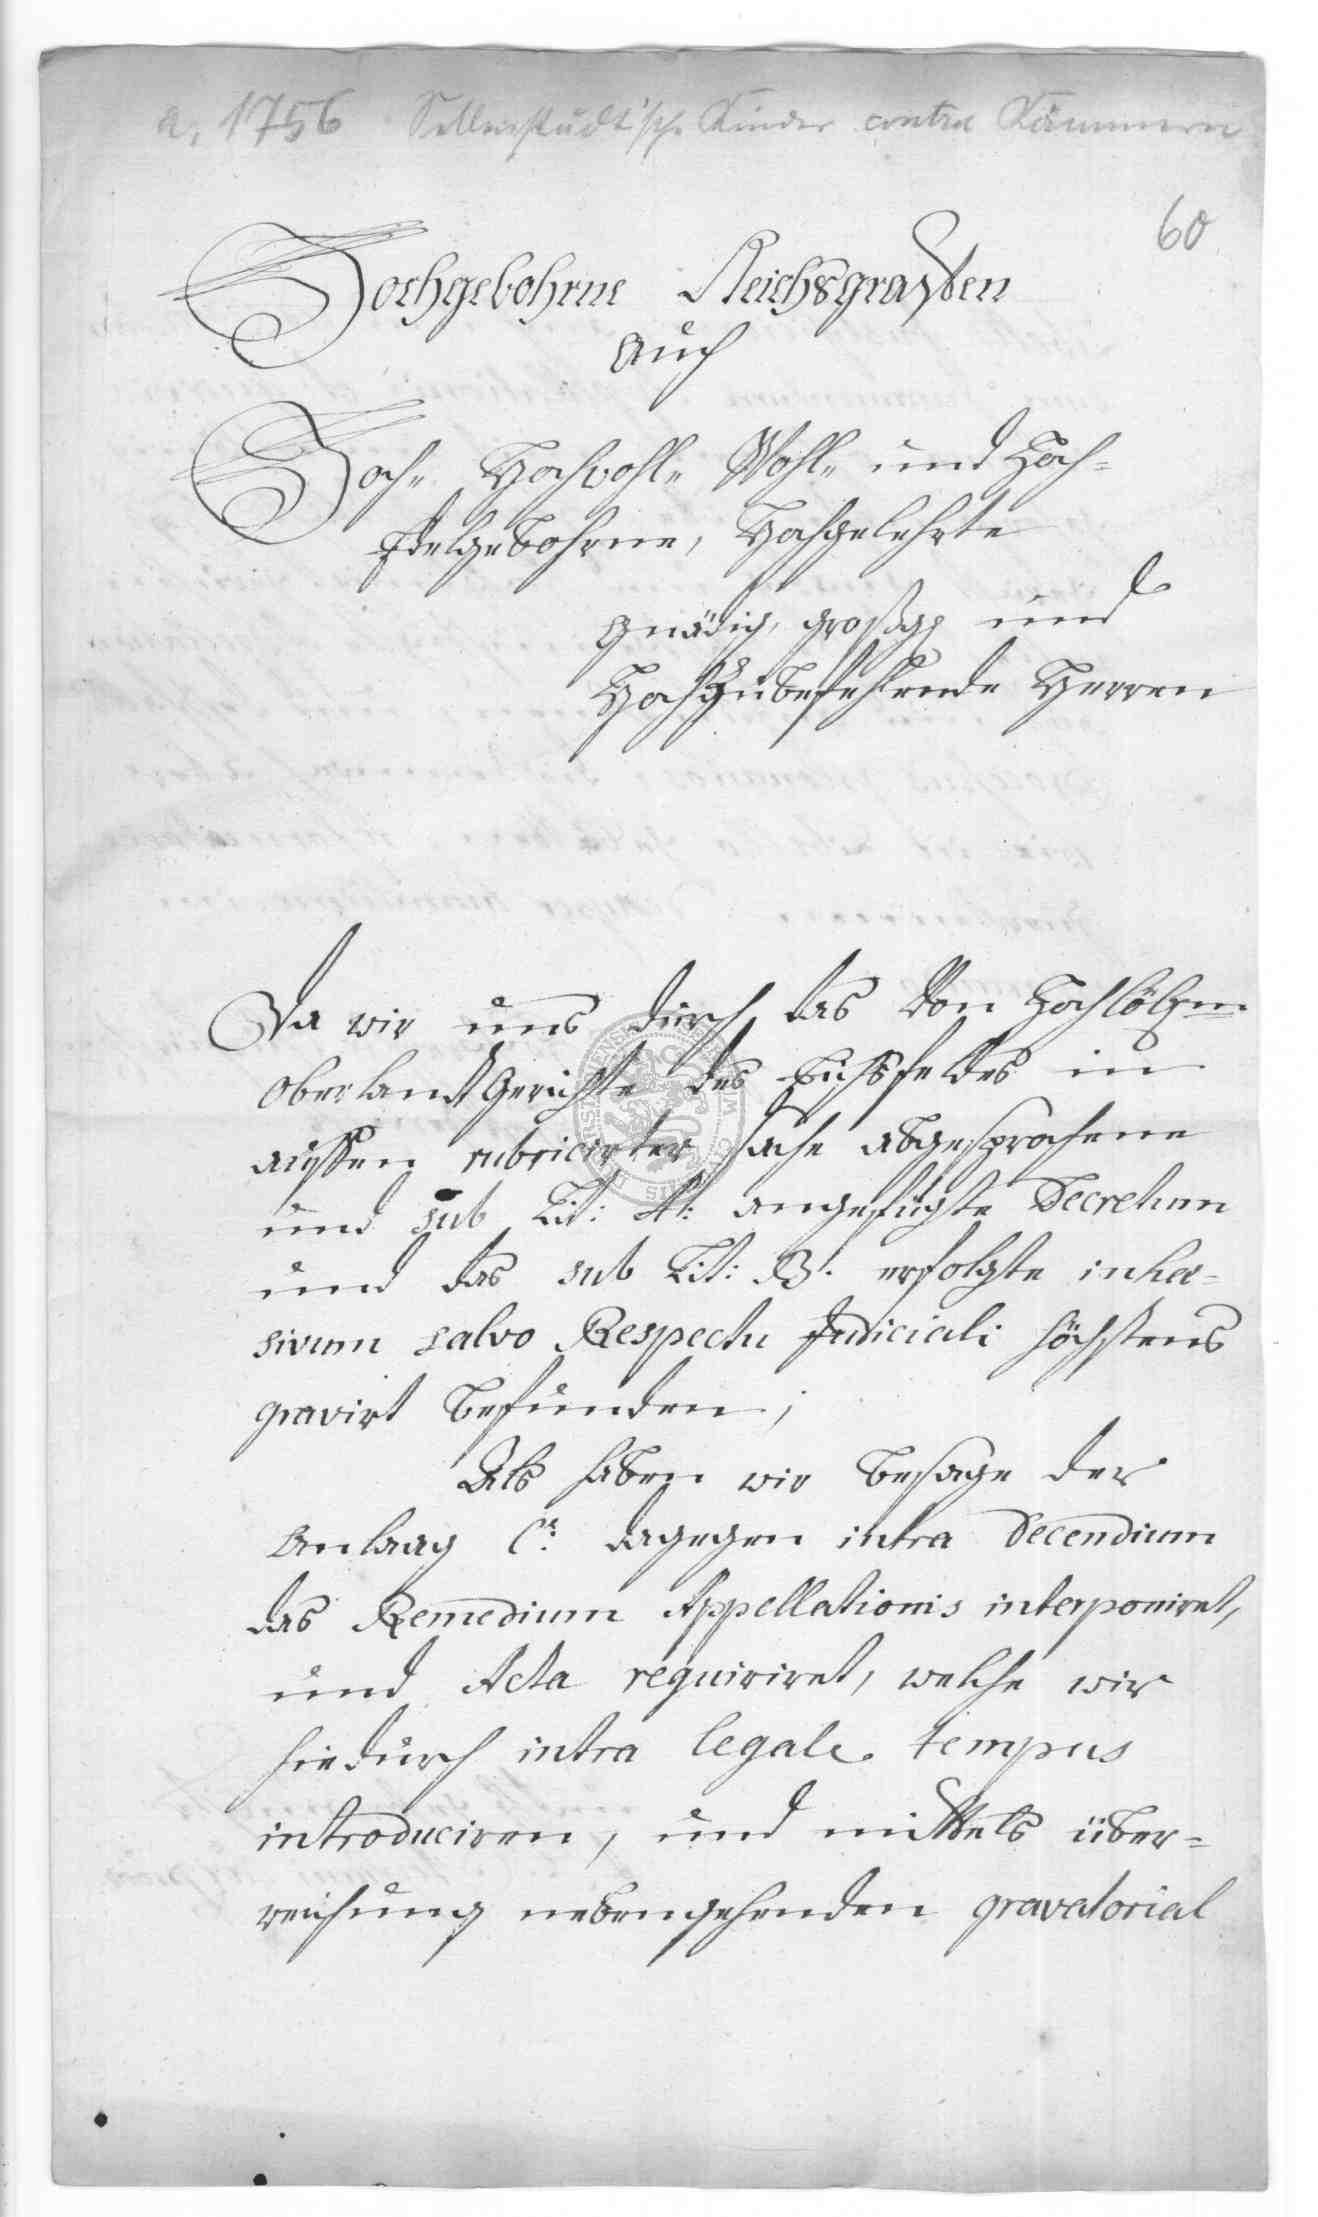 a. 1756 Sellenstädt'sche Kinder contra Kämmerer
60
Hochgebohrne Reichsgraffen
Auch
Hoch- Hochwohl- Wohl- und Hoch-
Edelgebohrne, Hochgelehrte
Gnädig, großgg und
Hochzubefehlende Herren
Da wir uns durch das von Hochlöbln
Oberlandt Gerichte des Eichsfeldes in
aussen rubricirter sache abgesprochene
und sub Lit: A: angefügte Decretum
und das sub Lit: B. erfolgte inhæ-
sivum salvo Respectu Judiciali höchstens
gravirt befunden;
Als haben wir besage der
Anlaag C. dagegen intra Decendium
das Remedium Appellationis interponiret,
und Acta requiriret, welche wir
hiedurch intra legale tempus
introduciren, und mittels über-
reichung nebengehenden gravatorial